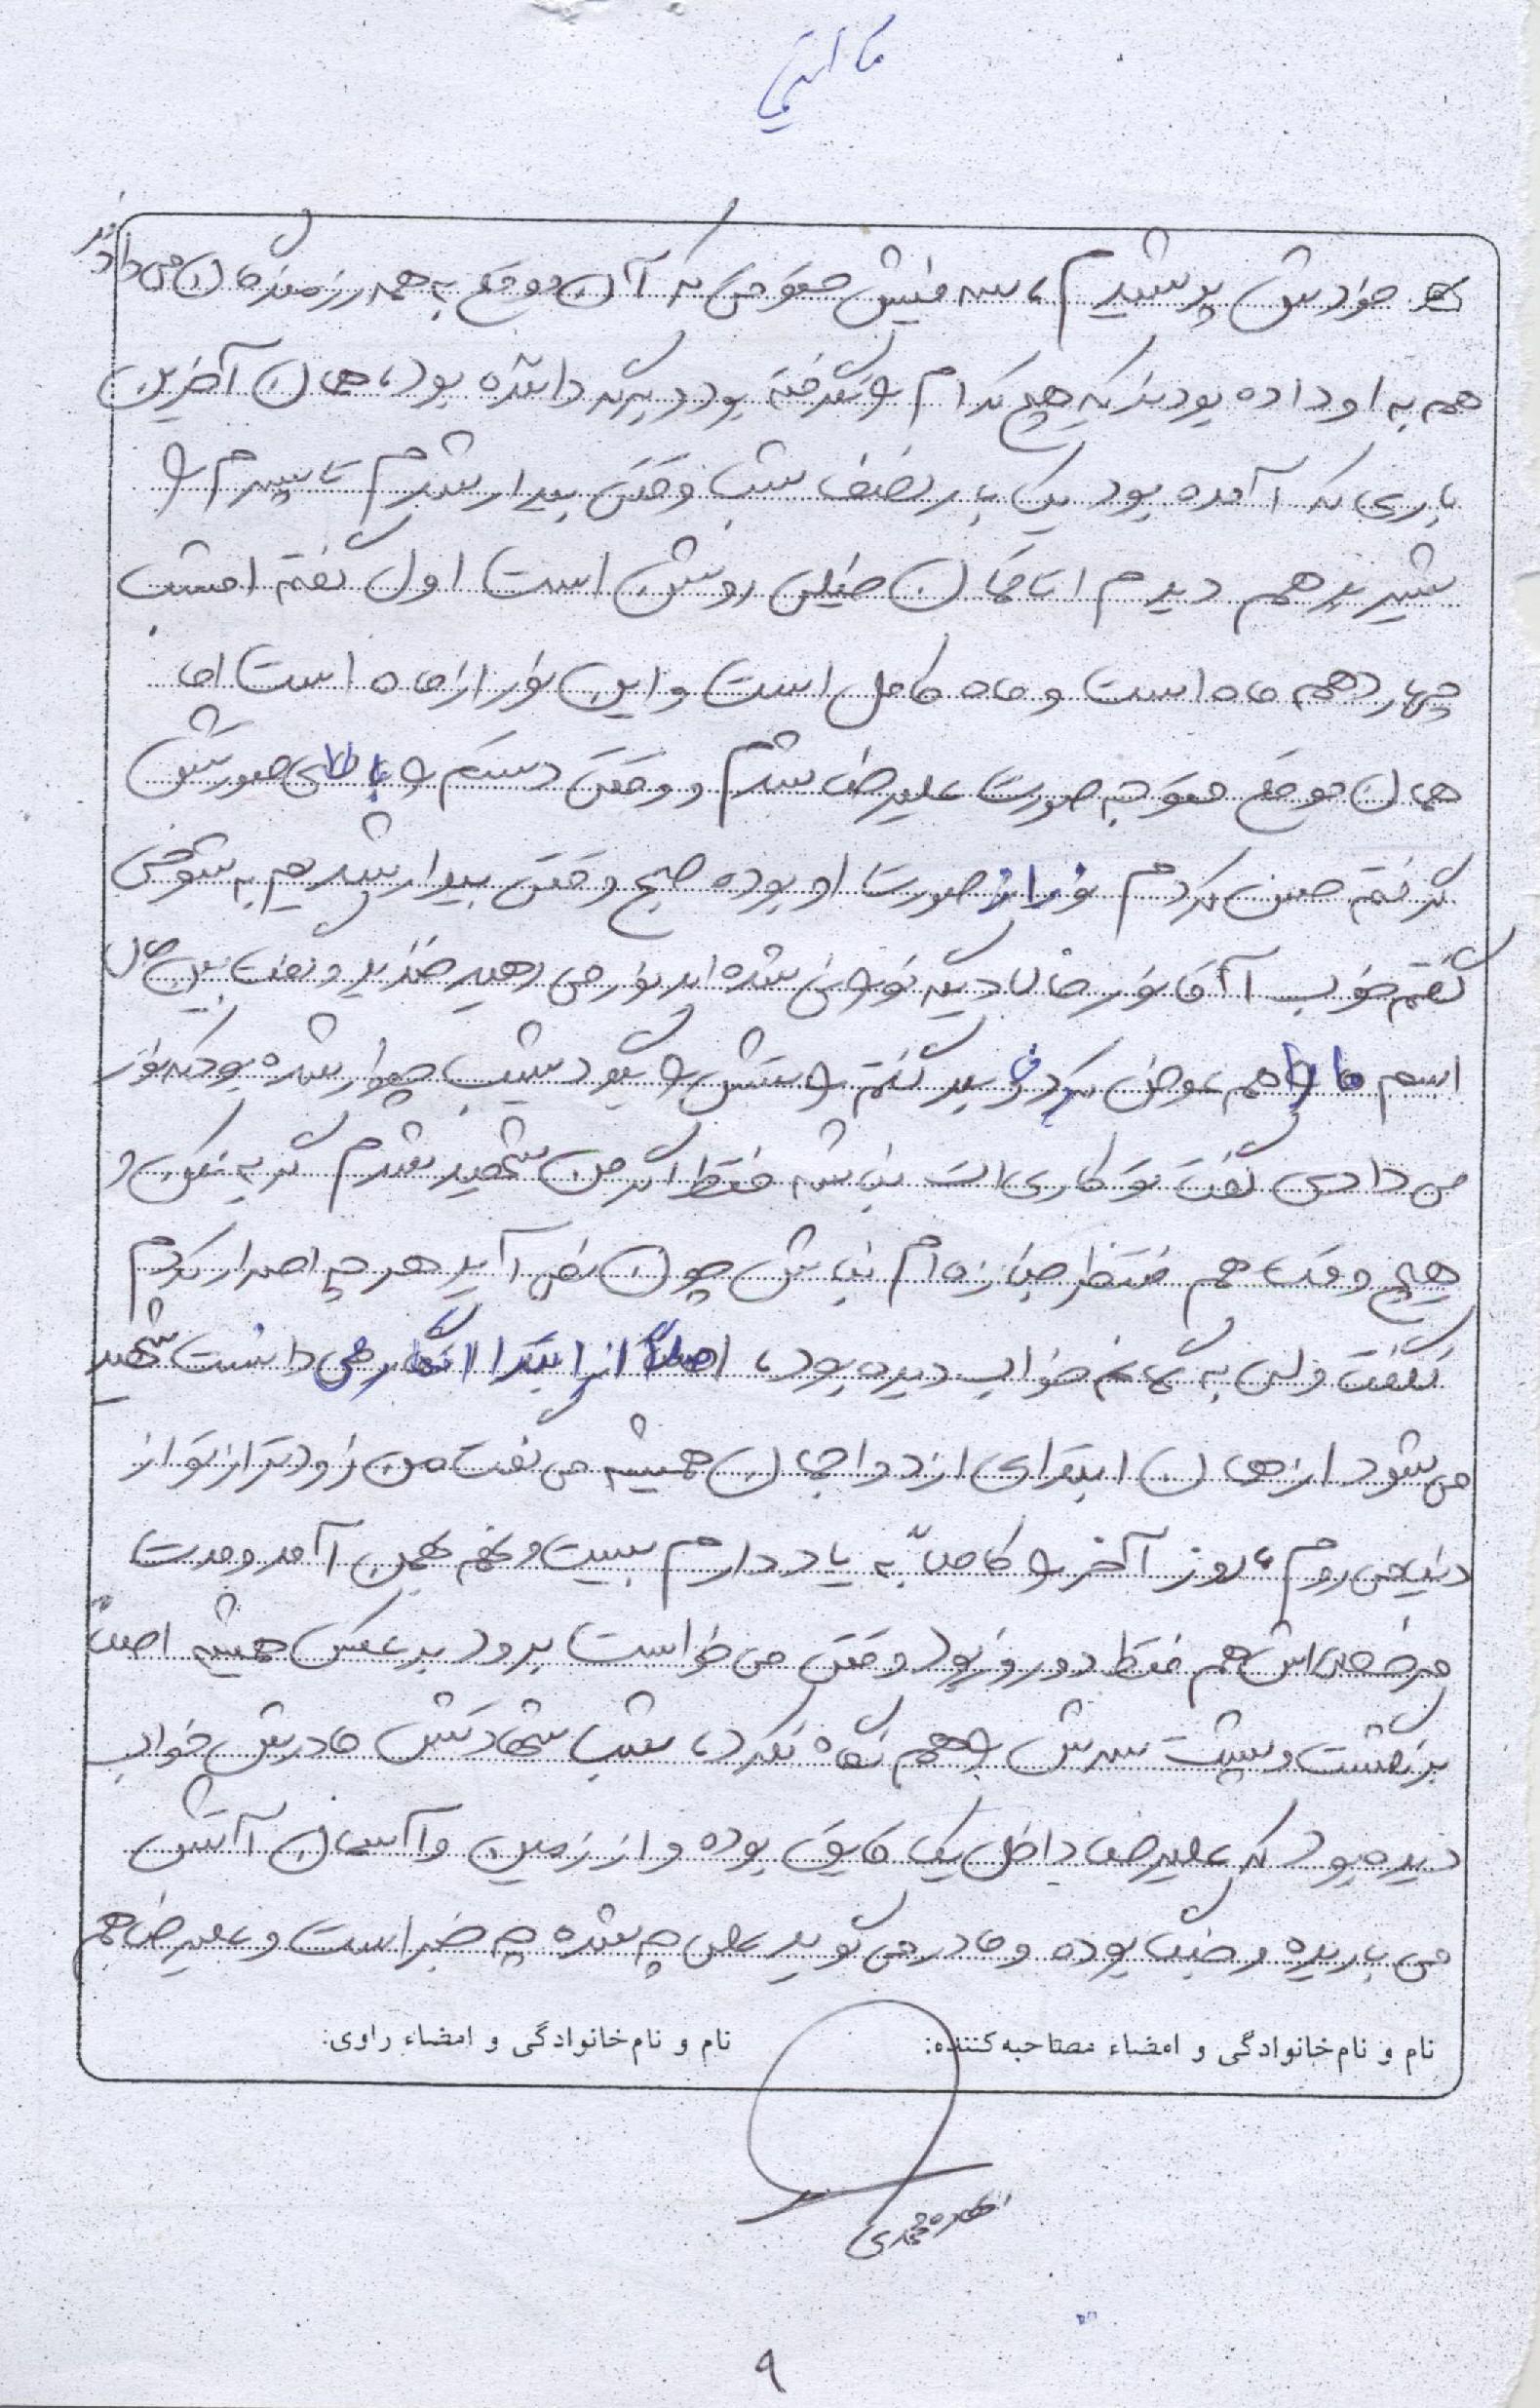 تا انتها
خودش پرسیدم، سه فیش حقوقی که آن موقع به همه رزمندگان می دادند
هم به او داده بودند که هیچ کدام را نگرفته بود دیگر داشته بود، همان آخرین
باری که آمده بود یک بار نصف شب وقتی بیدار شدم تا پسرم را
شیر بدهم دیدم اتاقمان خیلی روشن است اول گفتم امشب
چهاردهم ماه است و ماه کامل است و این نور از ماه است اما
همان موقع متوجه صورت علیرضا شدم و وقتی دستم را بالای صورتش
گرفتم حس کردم نور از صورت او بوده صبح وقتی بیدار شدیم به شوخی
گفتم خوب آقا نور خدا دیگه نورانی شده اید نور می دهید خندید و گفت ببین حالا
اسم ما را هم عوض کردید گفتم راستش را بگو دیشب چطور شده بود که نور
می دادی گفت تو کاری ات نباشه فقط اگر من شهید شدم گریه نکن و
هیچ وقت هم منتظر جنازه ام نباش چون نمی آید هر چه اصرار کردم
نگفت ولی به گمانم خواب دیده بود، اصلاً از ابتدا انگار می دانست شهید
می شود از همان ابتدای ازدواجمان همیشه می گفت من زودتر از تو از
دنیا می روم، روز آخر را کاملاً به یاد دارم بیست و نهم بهمن آمد و مدت
مرخصی اش هم فقط دو روز بود وقتی می خواست برود برعکس همیشه اصلاً
برنگشت و پشت سرش را هم نگاه نکرد، شب شهادتش مادرش خواب
دیده بود که علیرضا داخل یک قایق بوده و از زمین و آسمان آتش
می باریده و جنگ بوده و مادر می گوید علی چه شده چه خبر است و علیرضا هم
نام و نام خانوادگی و امضاء مصاحبه کننده: نام و نام خانوادگی و امضاء راوی:
محمدی
۹